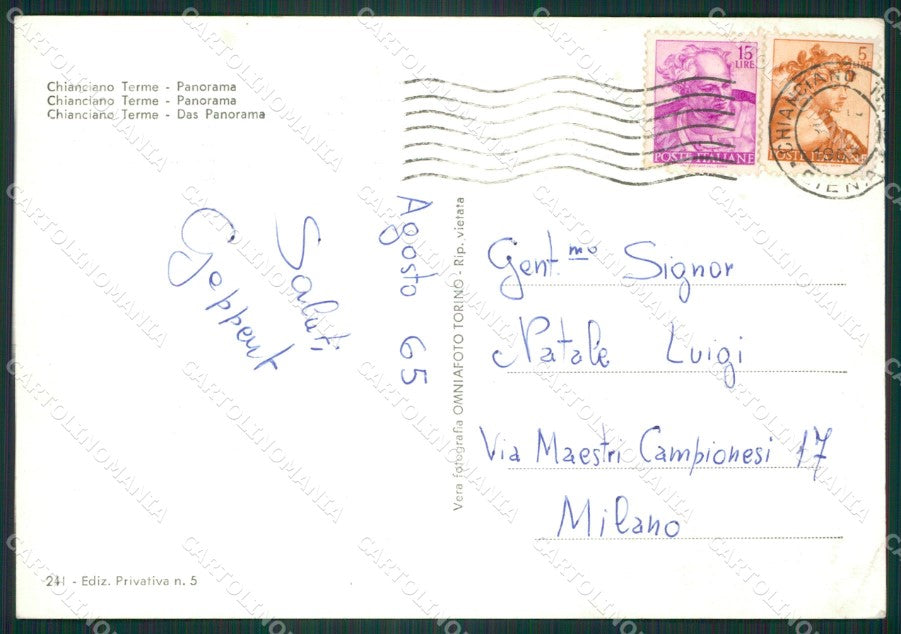 Chianciano Terme - Panorama
Chianciano Terme - Panorama
Chianciano Terme - Das Panorama
15
LIRE
POSTE ITALIANE
5
LIRE
POSTE ITALIANE
CHIANCIANO
SIENA
Agosto 65
Saluti
Vera fotografia OMNIAFOTO TORINO - Rip. vietata
Gent.mo Signor
Natale Luigi
Via Maestri Campionesi 17
Milano
241 - Ediz. Privativa n. 5
CARTOLINOMANIA